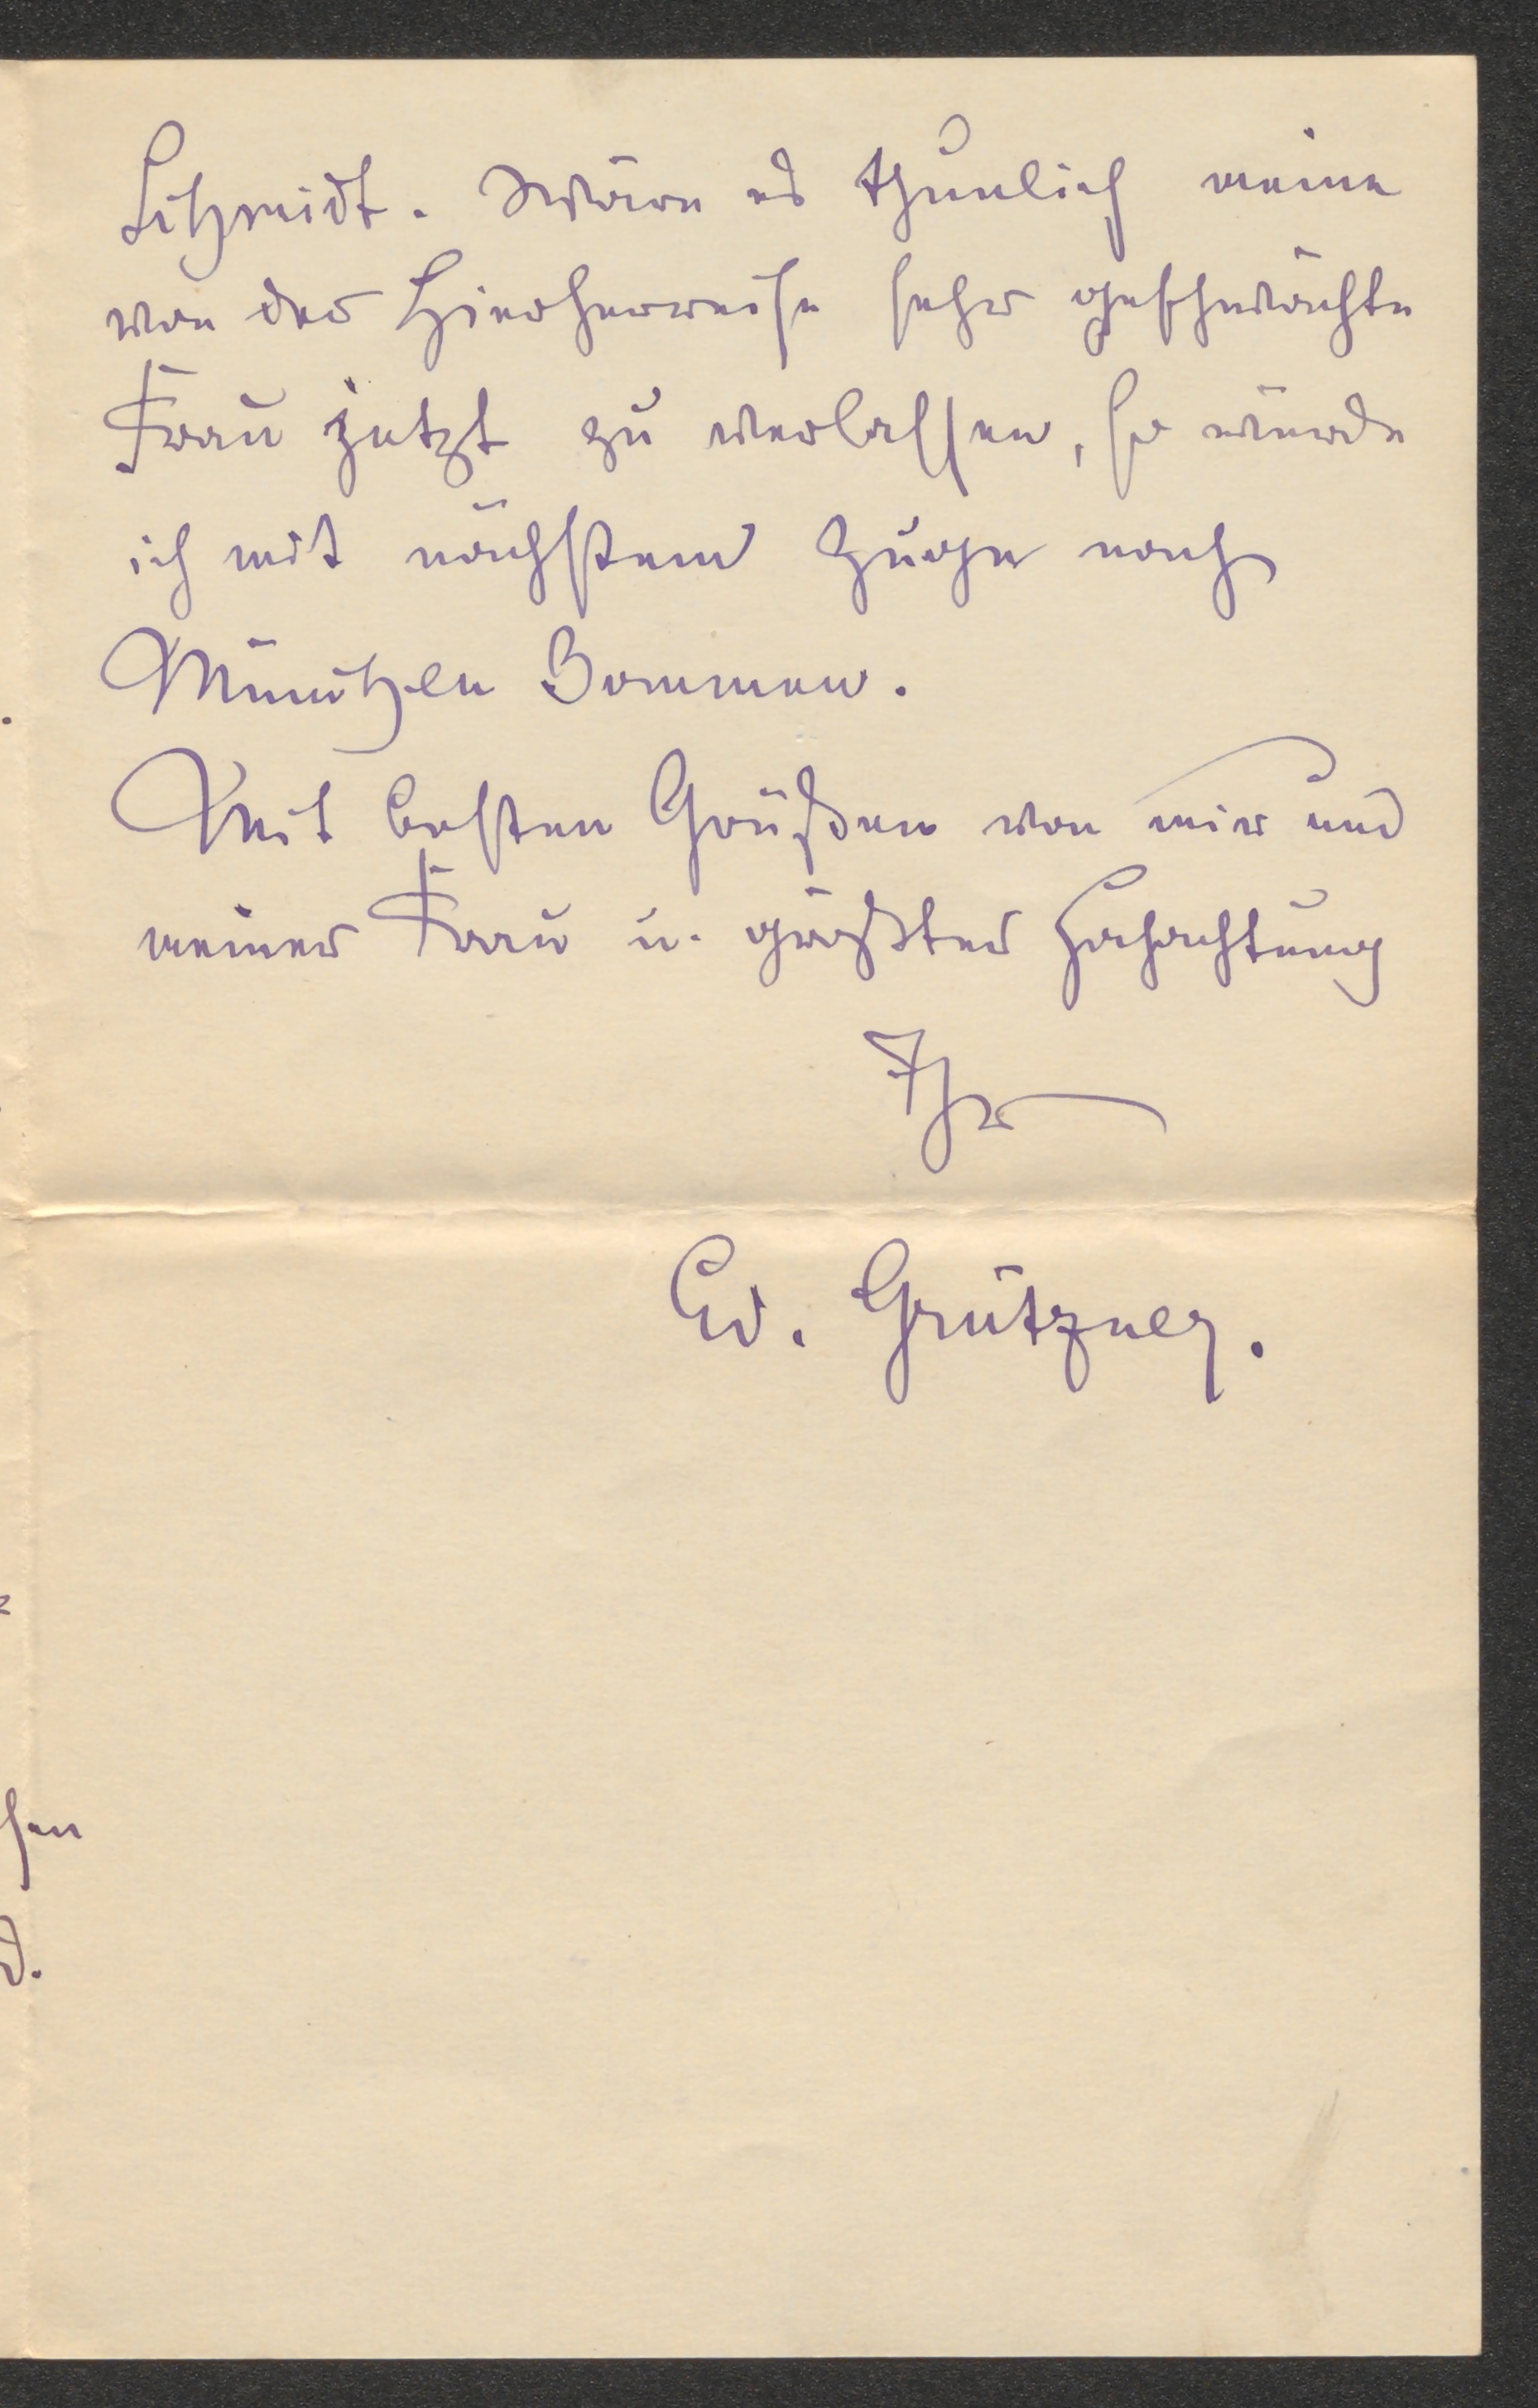 Schmidt. Wäre es thunlich meine
von der Hierherreise sehr geschwächte
Frau jetzt zu verlassen, so würde
ich mit nächstem Zuge nach
München kommen.
Mit besten Grüßen von mir und
meiner Frau u. größter Hochachtung
Ihr
Ed. Grützner.